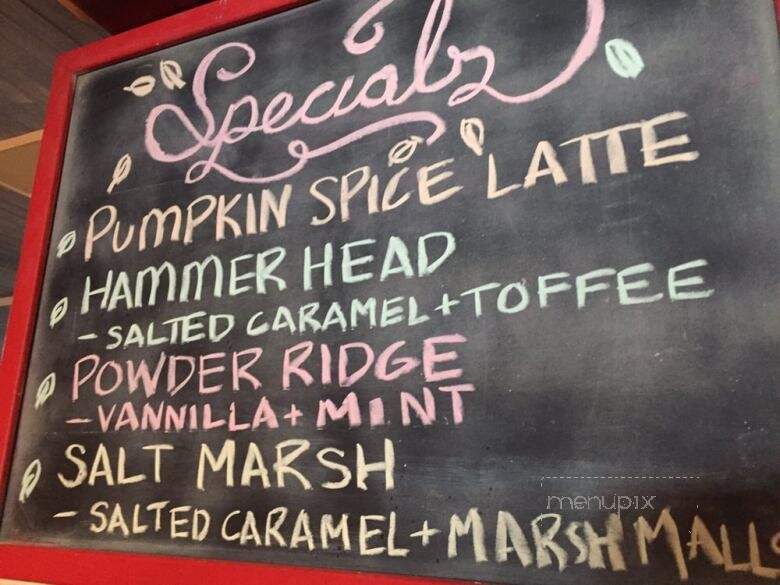 Specials
PUMPKIN SPICE LATTE
HAMMER HEAD
- SALTED CARAMEL + TOFFEE
POWDER RIDGE
- VANNILLA + MINT
SALT MARSH
- SALTED CARAMEL + MARSHMALLO
menupix